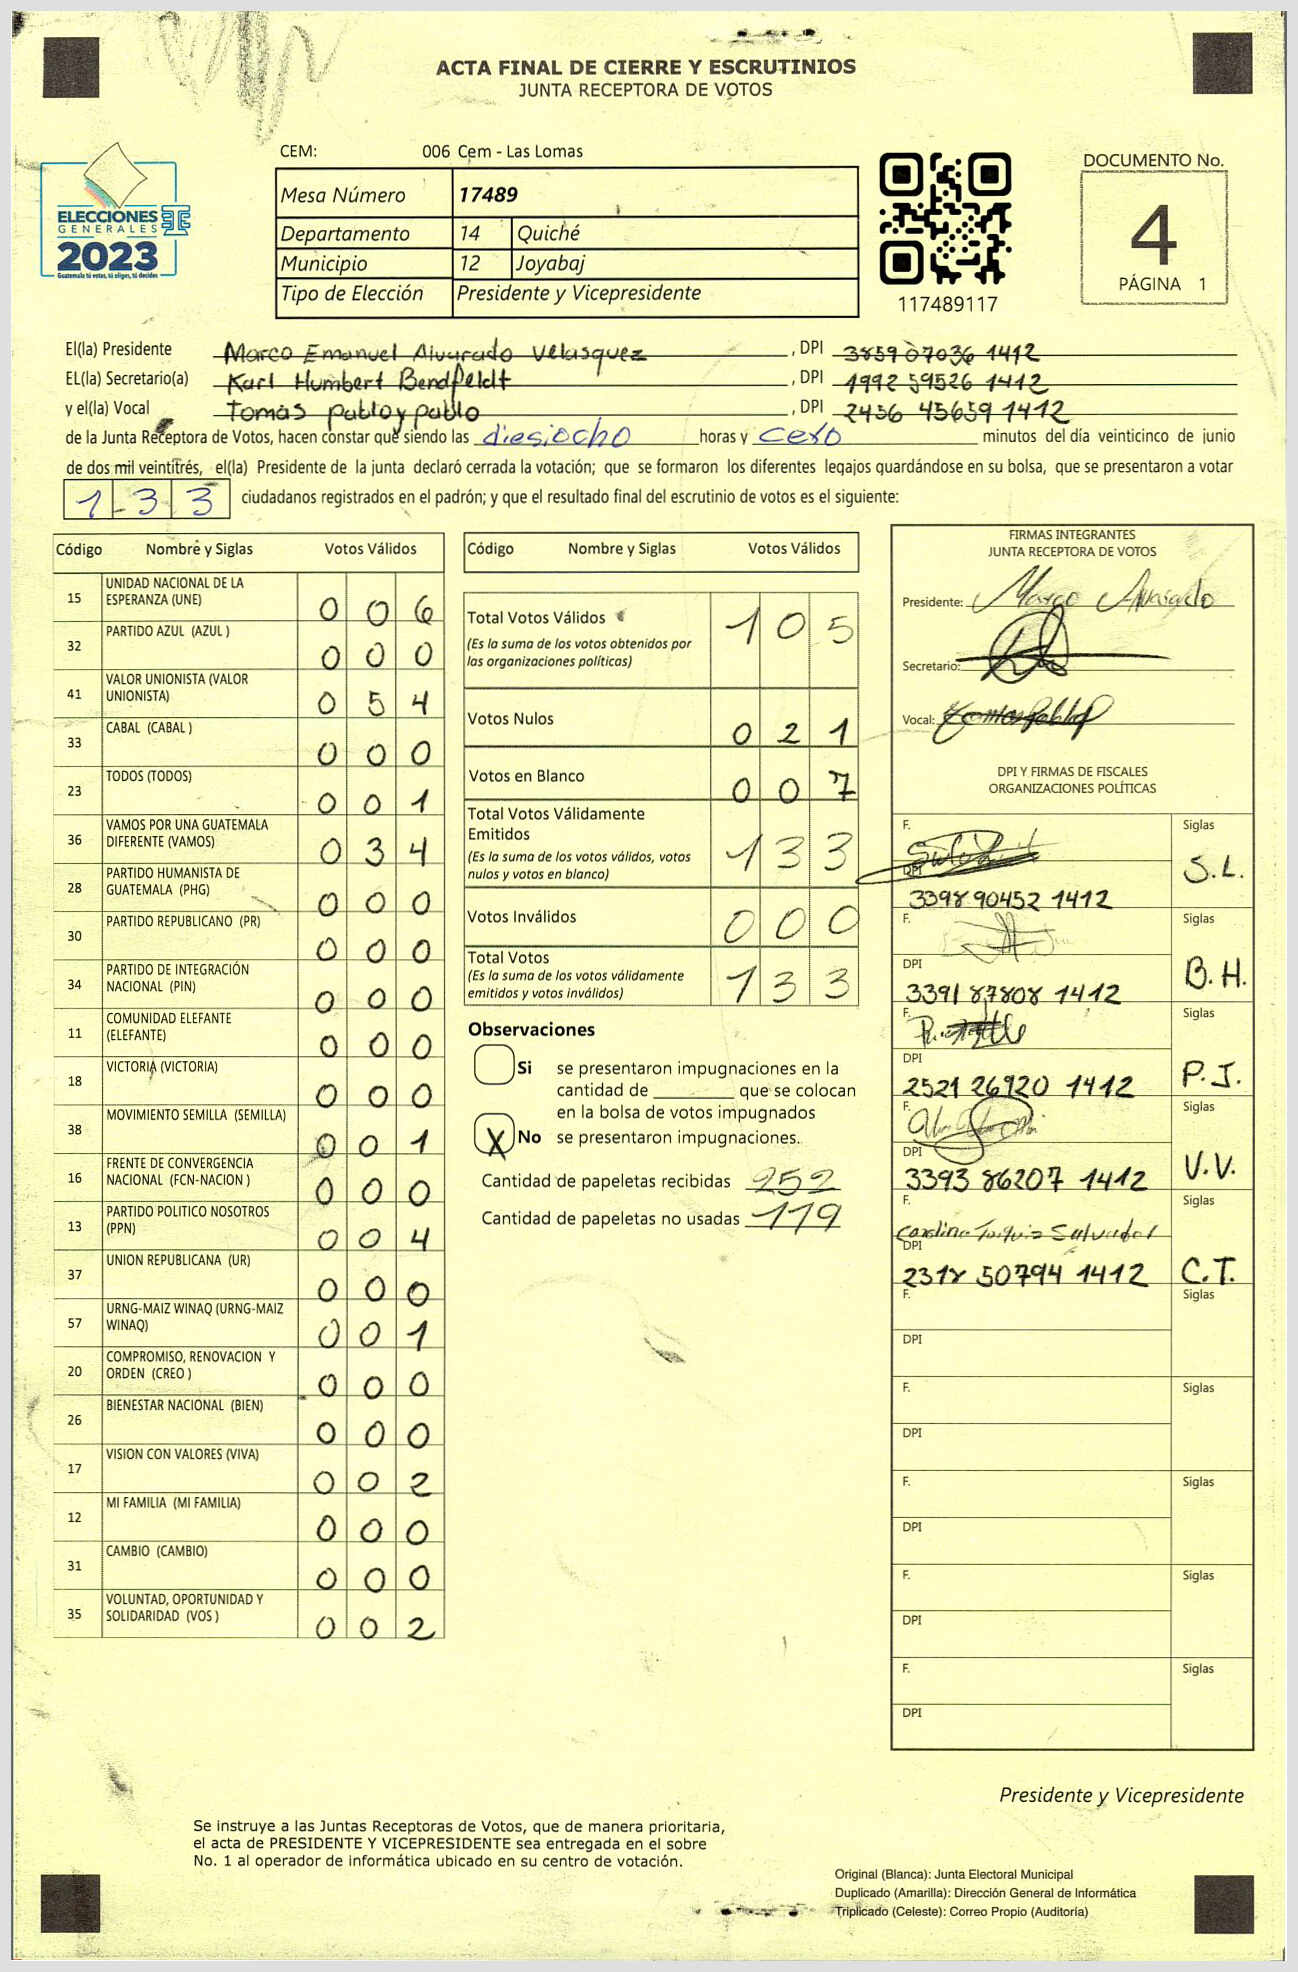 ACTA FINAL DE CIERRE Y ESCRUTINIOS
JUNTA RECEPTORA DE VOTOS
ELECCIONES
GENERALES
2023
Guatemala tú votas, tú eliges, tú decides
CEM: 006 Cem - Las Lomas
Mesa Número 17489
Departamento 14 Quiché
Municipio 12 Joyabaj
Tipo de Elección Presidente y Vicepresidente
117489117
DOCUMENTO No.
4
PÁGINA 1
El(la) Presidente Marco Emanuel Alvarado Velasquez , DPI 3859 07036 1412
EL(la) Secretario(a) Karl Humbert Bendfeldt , DPI 1992 59526 1412
y el(la) Vocal Tomas pablo y pablo , DPI 2456 45659 1412
de la Junta Receptora de Votos, hacen constar que siendo las diesiocho horas y cero minutos del día veinticinco de junio
de dos mil veintitrés, el(la) Presidente de la junta declaró cerrada la votación; que se formaron los diferentes legajos guardándose en su bolsa, que se presentaron a votar
133 ciudadanos registrados en el padrón; y que el resultado final del escrutinio de votos es el siguiente:
Código Nombre y Siglas Votos Válidos
15 UNIDAD NACIONAL DE LA
ESPERANZA (UNE) 0 0 6
32 PARTIDO AZUL (AZUL ) 0 0 0
41 VALOR UNIONISTA (VALOR
UNIONISTA) 0 5 4
33 CABAL (CABAL ) 0 0 0
23 TODOS (TODOS) 0 0 1
36 VAMOS POR UNA GUATEMALA
DIFERENTE (VAMOS) 0 3 4
28 PARTIDO HUMANISTA DE
GUATEMALA (PHG) 0 0 0
30 PARTIDO REPUBLICANO (PR) 0 0 0
34 PARTIDO DE INTEGRACIÓN
NACIONAL (PIN) 0 0 0
11 COMUNIDAD ELEFANTE
(ELEFANTE) 0 0 0
18 VICTORIA (VICTORIA) 0 0 0
38 MOVIMIENTO SEMILLA (SEMILLA) 0 0 1
16 FRENTE DE CONVERGENCIA
NACIONAL (FCN-NACION ) 0 0 0
13 PARTIDO POLITICO NOSOTROS
(PPN) 0 0 4
37 UNION REPUBLICANA (UR) 0 0 0
57 URNG-MAIZ WINAQ (URNG-MAIZ
WINAQ) 0 0 1
20 COMPROMISO, RENOVACION Y
ORDEN (CREO ) 0 0 0
26 BIENESTAR NACIONAL (BIEN) 0 0 0
17 VISION CON VALORES (VIVA) 0 0 2
12 MI FAMILIA (MI FAMILIA) 0 0 0
31 CAMBIO (CAMBIO) 0 0 0
35 VOLUNTAD, OPORTUNIDAD Y
SOLIDARIDAD (VOS ) 0 0 2
Código Nombre y Siglas Votos Válidos
Total Votos Válidos 1 0 5
(Es la suma de los votos obtenidos por
las organizaciones políticas)
Votos Nulos 0 2 1
Votos en Blanco 0 0 7
Total Votos Válidamente
Emitidos 1 3 3
(Es la suma de los votos válidos, votos
nulos y votos en blanco)
Votos Inválidos 0 0 0
Total Votos 1 3 3
(Es la suma de los votos válidamente
emitidos y votos inválidos)
Observaciones
Si se presentaron impugnaciones en la
cantidad de ________ que se colocan
en la bolsa de votos impugnados
X No se presentaron impugnaciones.
Cantidad de papeletas recibidas 252
Cantidad de papeletas no usadas 119
FIRMAS INTEGRANTES
JUNTA RECEPTORA DE VOTOS
Presidente: Marco Alvarado
Secretario:
Vocal:
DPI Y FIRMAS DE FISCALES
ORGANIZACIONES POLÍTICAS
F. Siglas
DPI S.L.
3398 90452 1412
F. Siglas
DPI B.H.
3391 87808 1412
F. Siglas
DPI P.J.
2521 26920 1412
F. Siglas
DPI V.V.
3393 86207 1412
F. Siglas
Salvador
DPI C.T.
2318 50794 1412
F. Siglas
DPI
F. Siglas
DPI
F. Siglas
DPI
F. Siglas
DPI
F. Siglas
DPI
Presidente y Vicepresidente
Se instruye a las Juntas Receptoras de Votos, que de manera prioritaria,
el acta de PRESIDENTE Y VICEPRESIDENTE sea entregada en el sobre
No. 1 al operador de informática ubicado en su centro de votación.
Original (Blanca): Junta Electoral Municipal
Duplicado (Amarilla): Dirección General de Informática
Triplicado (Celeste): Correo Propio (Auditoría)